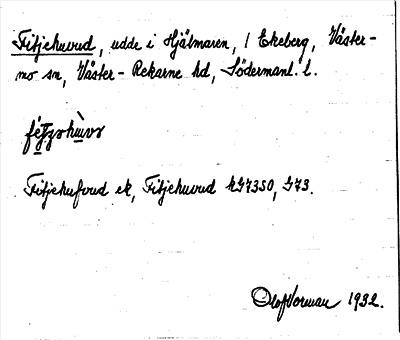 Fitjehuvud, udde i Hjälmaren, / Ekeberg, Väster-
mo sn, Väster-Rekarne hd, Södermanl. l.
Fitjehufvud ek, Fitjehuvud KG7350, G73.
Olof Norman 1932.